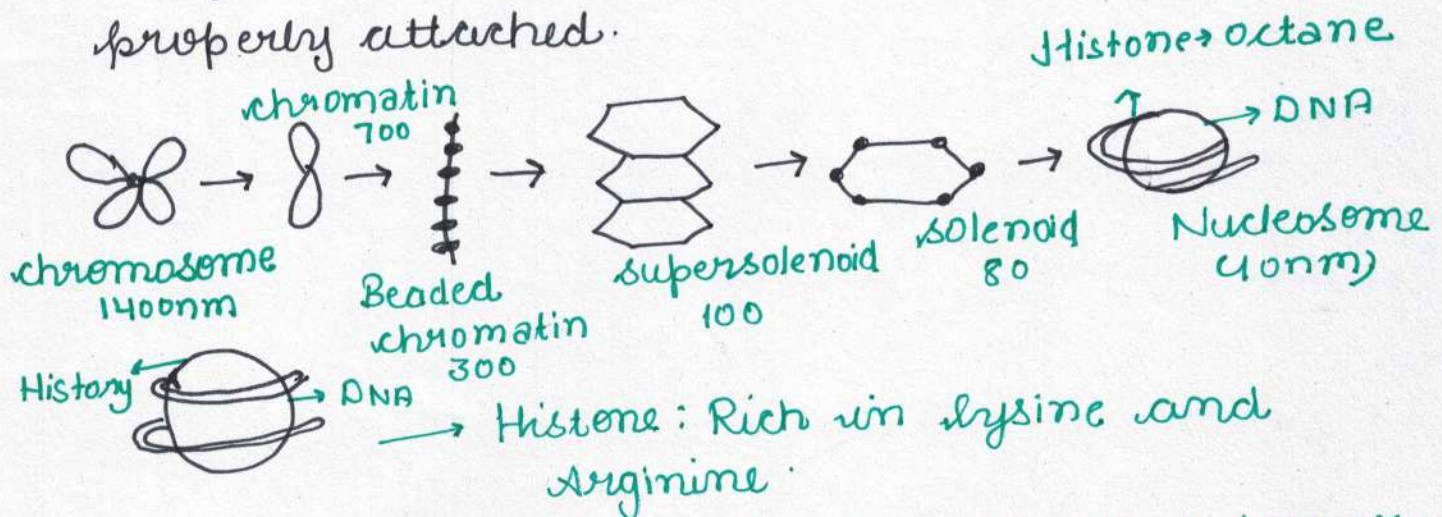 properly attached.
Histone→ octane
chromatin
700
→ DNA
chromosome
1400nm
Beaded
chromatin
300
supersolenoid
100
solenoid
80
Nucleosome
(10nm)
History
→ DNA
→ Histone : Rich in lysine and
Arginine.